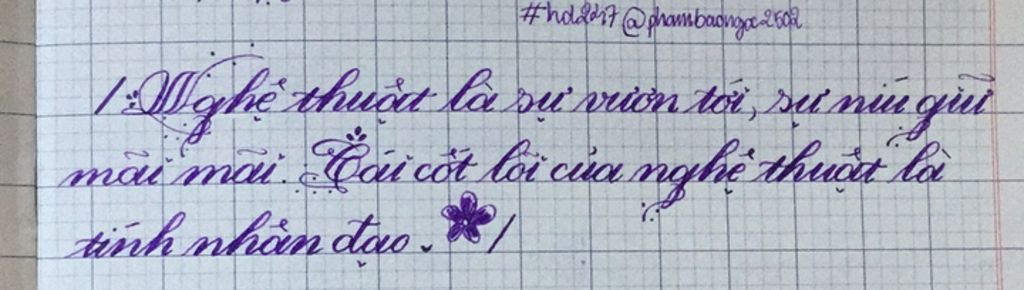 #hd2247 @phambaongoc2502
/ Nghệ thuật là sự vươn tới, sự níu giữ
mãi mãi. Cái cốt lõi của nghệ thuật là
tính nhân đạo. /